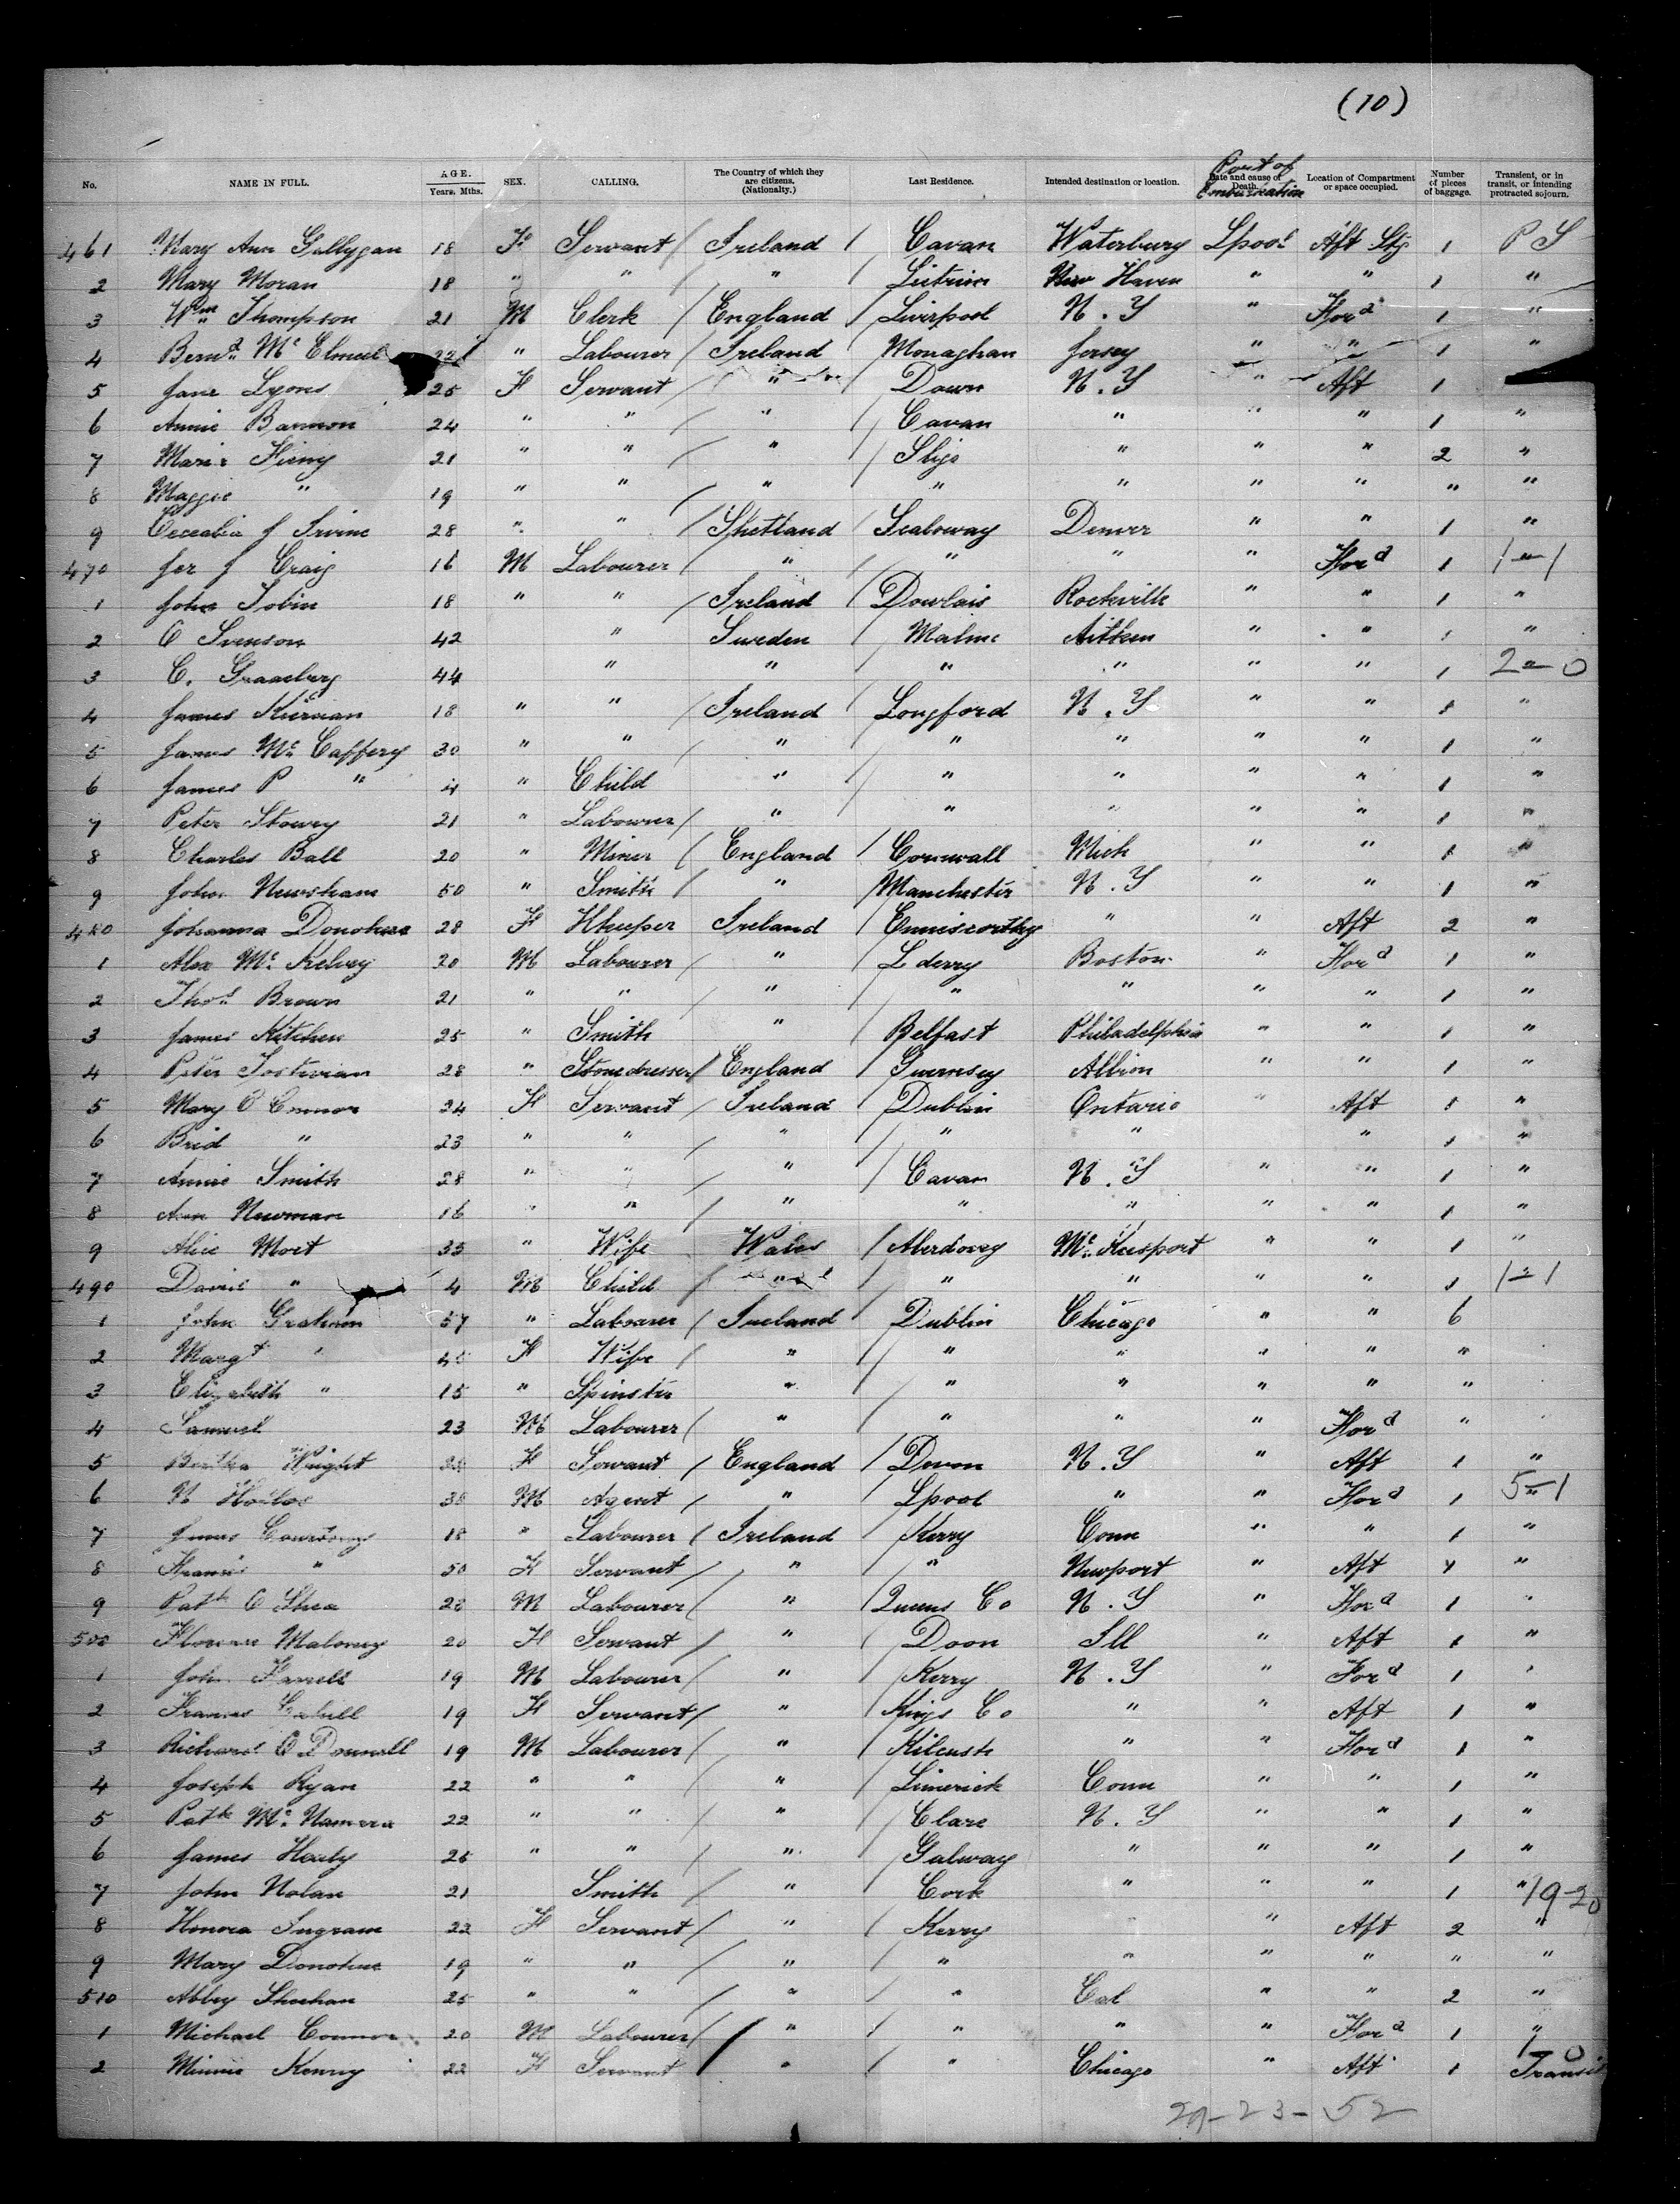 (10)
No. NAME IN FULL. AGE. Years. Mths. SEX. CALLING. The Country of which they are citizens. (Nationalty.) Last Residence. Intended destination or location. Date and cause of Death. Port of Embarkation Location of Compartment or space occupied. Number of pieces of baggage. Transient, or in transit, or intending protracted sojourn.
461 Mary Ann Gallygan 18 F Servant / Ireland / Cavan Waterbury Lpool Aft Stg 1 P S
2 Mary Moran 18 " " " Lietrim New Haven " " 1 "
3 Wm Thompson 21 M Clerk / England / Liverpool N.Y " Ford 1 "
4 Bernd Mc 22 " Labourer / Ireland / Monaghan Jersey " " 1 "
5 Jane Lyons 25 F Servant / " / Down N.Y " Aft 1
6 Annie Bannon 24 " " / " / Cavan " " " 1 "
7 Maria 21 " " / " / Sligo " " " 2 "
8 Maggie " 19 " " / " / " " " " " "
9 Cecealia J Irvine 28 " " / Shetland / Scaloway Denver " " 1 "
470 Jer J Craig 16 M Labourer / " / " " " Ford 1 1-1
1 John Tobin 18 " " / Ireland / Dowlais Rockville " " 1 "
2 O Svenson 42 " Sweden / Malmo Aitken " " 1 "
3 C. 44 " " / " " " " 1 2-0
4 James Kiernan 18 " " / Ireland / Longford N.Y " " 1 "
5 James Mc Caffery 30 " " / " / " " " " 1 "
6 James P " 4 " Child " / " " " " 1 "
7 Peter Stowey 21 " Labourer / " / " " " " 1 "
8 Charles Ball 20 " Miner / England / Cornwall Mich " " 1 "
9 John Newsham 50 " Smith / " / Manchester N.Y " " 1 "
480 Johanna Donohue 28 F HKeeper Ireland / Enniscorthy " " Aft 2 "
1 Alex Mc Kelvey 20 M Labourer / " / L derry Boston " Ford 1 "
2 Thos Brown 21 " " / " / " " " " 1 "
3 James Kitchen 25 " Smith " / Belfast Philadelphia " " 1 "
4 Peter 28 " Stonedresser / England / Guernsey Albion " " 1 "
5 Mary O'Connor 24 F Servant / Ireland / Dublin Ontario " Aft 1 "
6 Brid " 23 " " / " / " " " 1 "
7 Annie Smith 28 " " / " / Cavan N.Y " " 1 "
8 Ann Newman 16 " " / " / " " " " 1 "
9 Alice Mort 35 " Wife Wales / Aberdovey Mc Keesport " " 1 "
490 David " 4 M Child / " / " " " " 1 1-1
1 John Graham 57 " Labourer / Ireland / Dublin Chicago " " 6
2 Margt " 45 F Wife / " / " " " " "
3 Elizabeth " 15 " Spinster " / " " " " "
4 Samuel 23 M Labourer / " / " " " Ford "
5 Bertha Wright F Servant / England / Devon N.Y " Aft 1 "
6 N 38 M Agent / " / Lpool " " Ford 1 5-1
7 James Courtney 18 " Labourer / Ireland / Kerry Conn " " 1 "
8 " 50 F Servant / " / " Newport " Aft "
9 Patk O Shea 28 M Labourer / " / Queens Co N.Y " Ford 1 "
500 Florence Maloney 20 F Servant / " / Doon Ill " Aft 1 "
1 John Farrell 19 M Labourer / " / Kerry N.Y " Ford 1 "
2 Frances Cahill 19 F Servant / " / Kings Co " " Aft 1 "
3 Richard O Donnell 19 M Labourer / " / Kilrush " " Ford 1 "
4 Joseph Ryan 22 " " / " / Limerick Conn " " 1 "
5 Patk Mc Namara 22 " " / " / Clare N.Y " " 1 "
6 James Healy 25 " " / " / Galway " " " 1 "
7 John Nolan 21 Smith / " / Cork " " " 1 " 19-20
8 Honora Ingram 22 F Servant / " / Kerry " " Aft 2 "
9 Mary Donohue 19 " " / " / " " " " " "
510 Abbey Sheehan 25 " " / " / " Cal " " 2 "
1 Michael Connor 20 M Labourer / " / " " " Ford 1 "
1 0
2 Minnie Kenny 22 F Servant / " / " Chicago " Aft 1 Transit
29-23-52